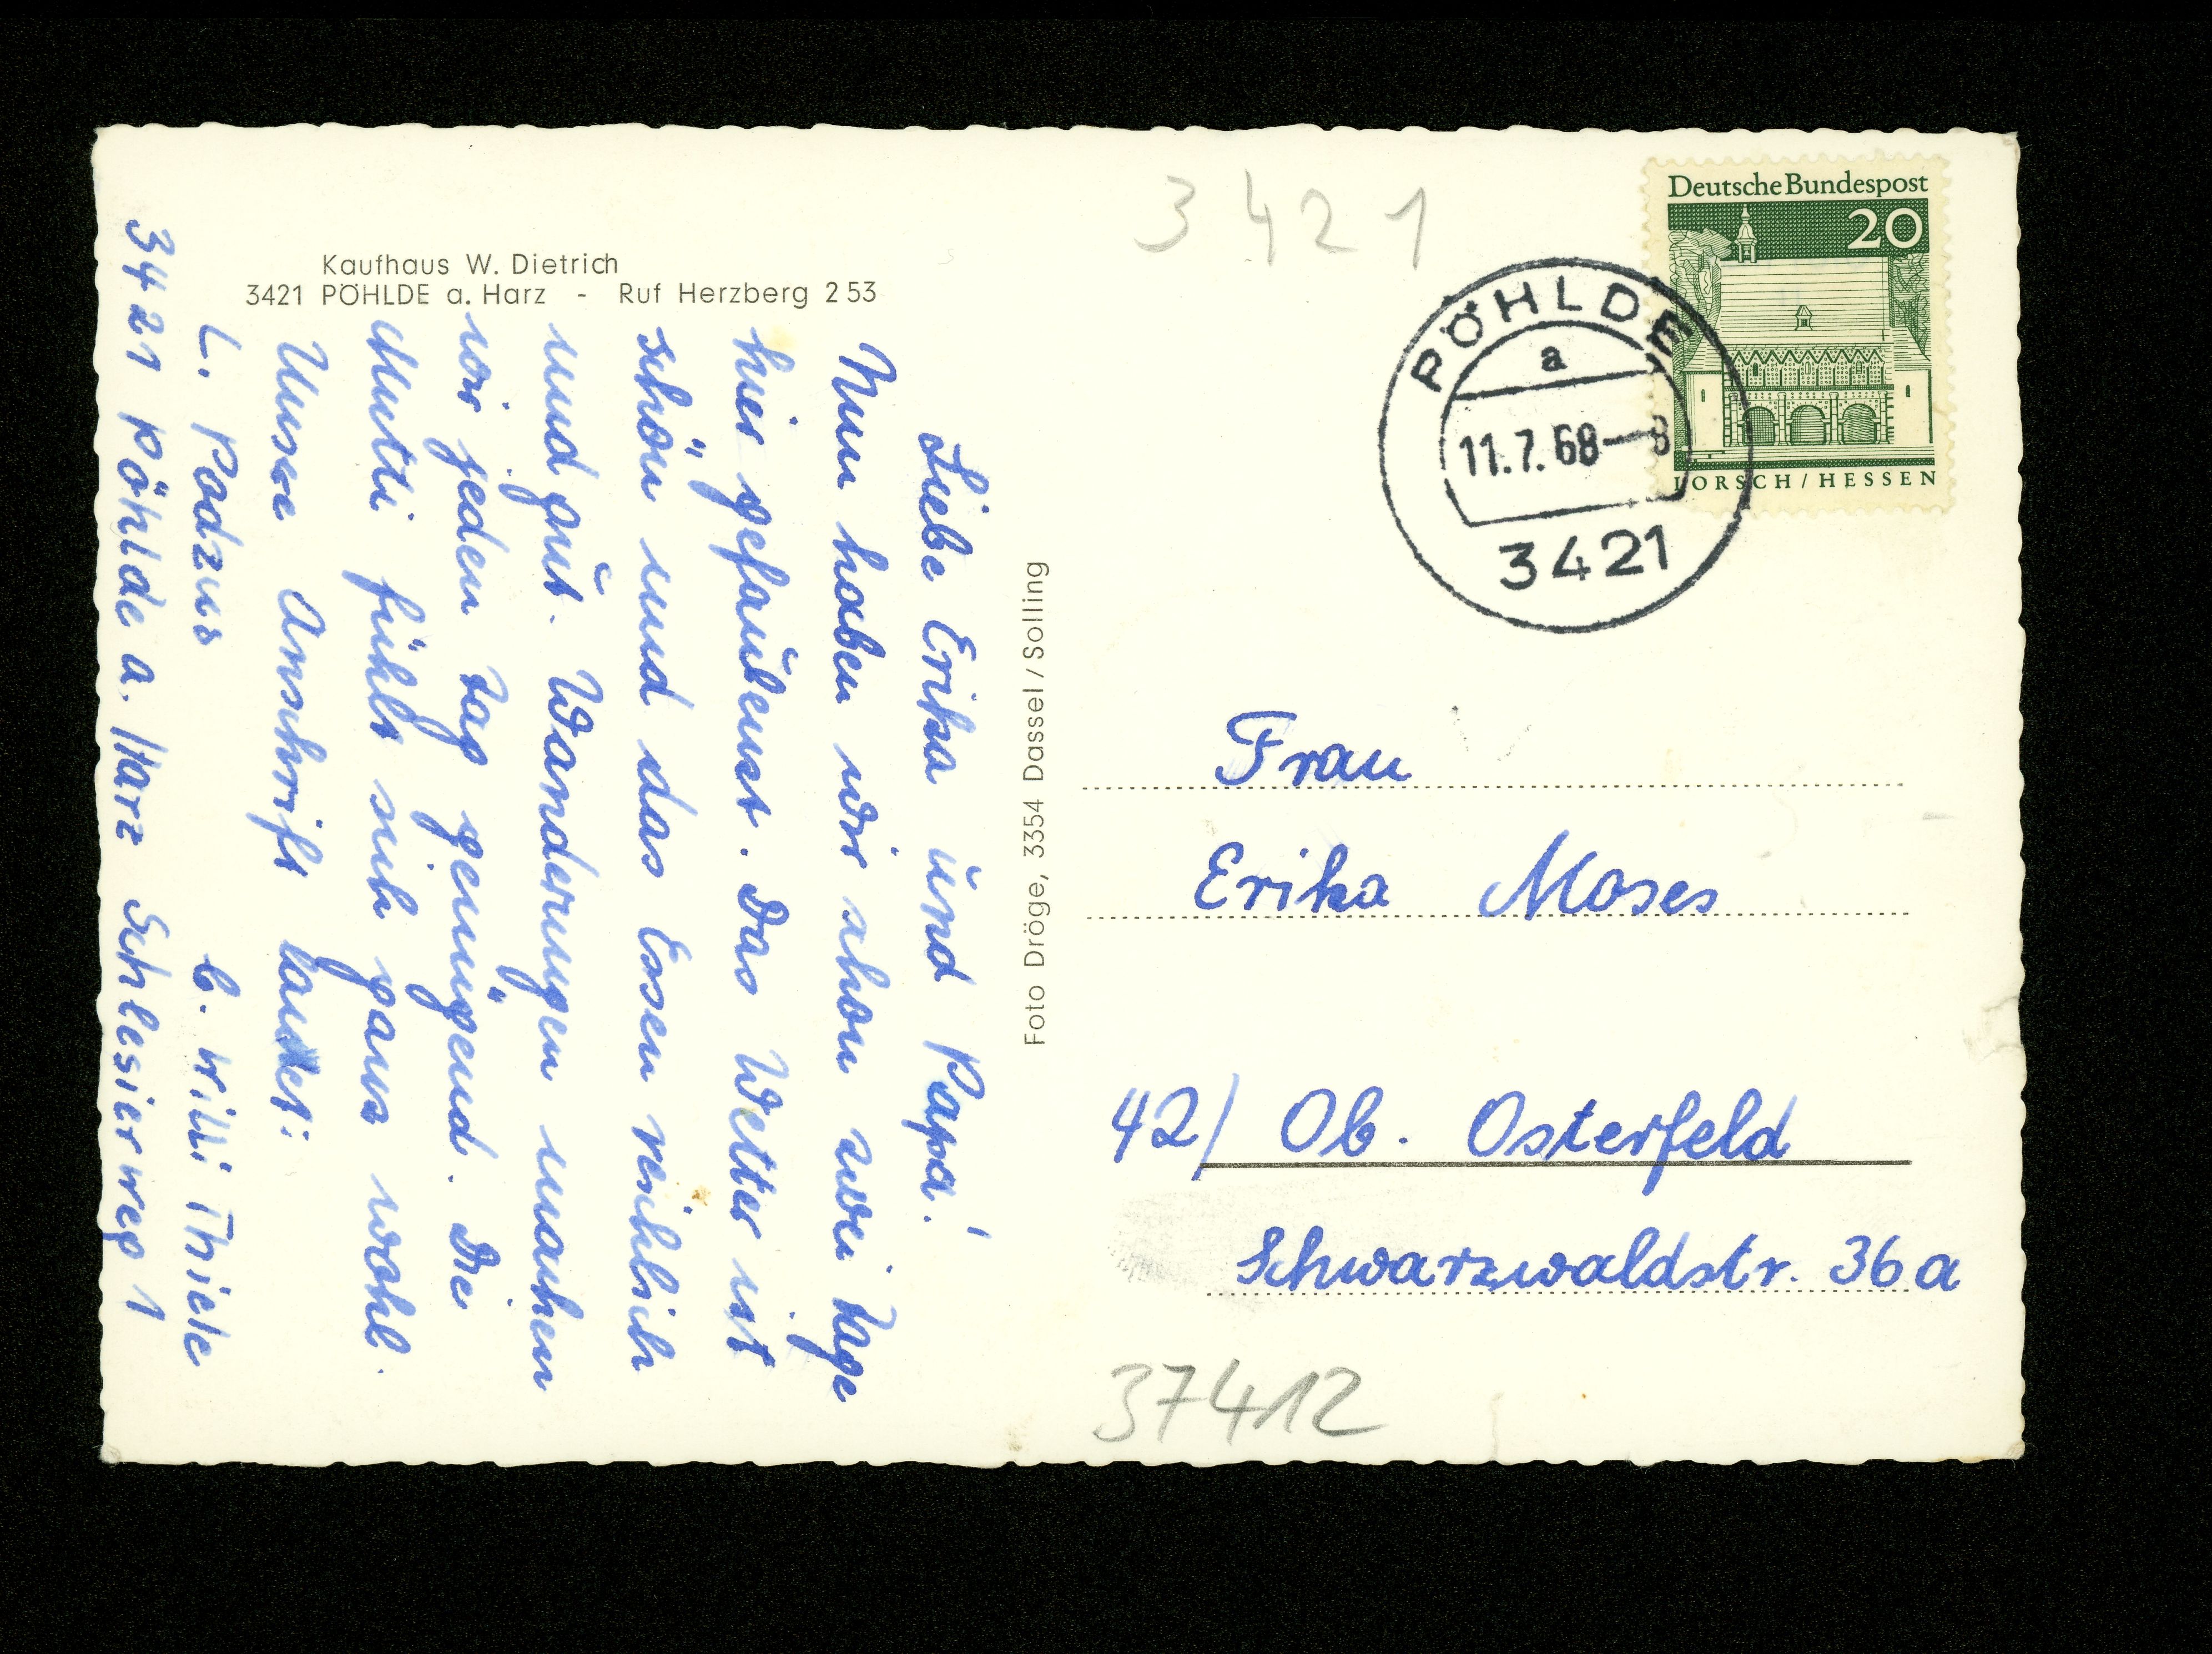 Kaufhaus W. Dietrich
3421 PÖHLDE a. Harz - Ruf Herzberg 2 53
Liebe Erika und Papa!
Nun haben wir schon zwei Tage
hier gefaulenzt. Das Wetter ist
schön und das Essen reichlich
und gut. Wanderungen machen
wir jeden Tag genügend. Die
Mutti fühlt sich ganz wohl.
Unsere Anschrift lautet:
L. Podzus b. Willi Thiele
3421 Pöhlde a. Harz Schlesierweg 1
Foto Dröge, 3354 Dassel / Solling
3421
Deutsche Bundespost
20
LORSCH / HESSEN
PÖHLDE
a
11.7.68-8
3421
Frau
Erika Moses
42/ Ob. Osterfeld
Schwarzwaldstr. 36a
37412